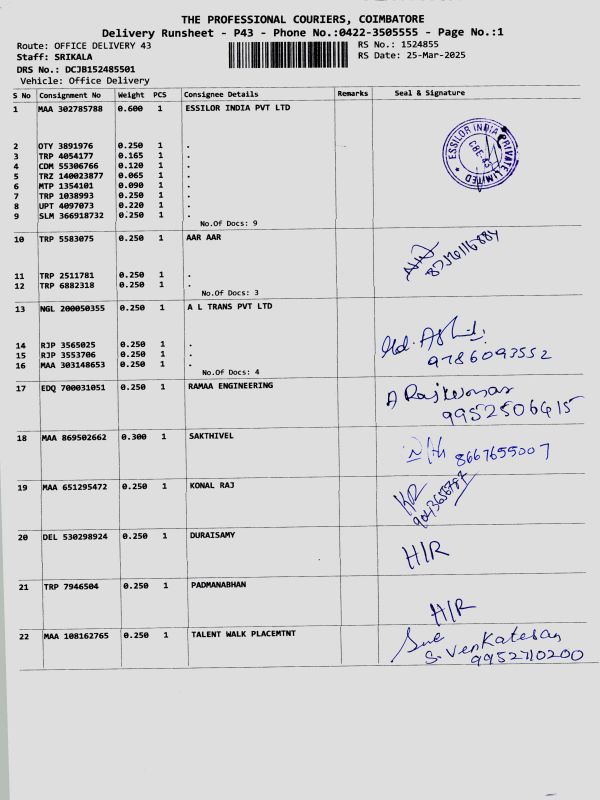 THE PROFESSIONAL COURIERS, COIMBATORE
Delivery Runsheet - P43 - Phone No.:0422-3505555 - Page No.:1
Route: OFFICE DELIVERY 43
RS No.: 1524855
Staff: SRIKALA
RS Date: 25-Mar-2025
DRS No.: DCJB152485501
Vehicle: Office Delivery
S No Consignment No Weight PCS Consignee Details Remarks Seal & Signature
1 MAA 302785788 0.600 1 ESSILOR INDIA PVT LTD
ESSILOR INDIA PRIVATE LIMITED
CBE-43
2 OTY 3891976 0.250 1 .
3 TRP 4054177 0.165 1 .
4 CDM 55306766 0.120 1 .
5 TRZ 140023877 0.065 1 .
6 MTP 1354101 0.090 1 .
7 TRP 1038993 0.250 1 .
8 UPT 4097073 0.220 1 .
9 SLM 366918732 0.250 1 .
No.Of Docs: 9
10 TRP 5583075 0.250 1 AAR AAR
11 TRP 2511781 0.250 1 .
12 TRP 6882318 0.250 1 .
No.Of Docs: 3
13 NGL 200050355 0.250 1 A L TRANS PVT LTD
14 RJP 3565025 0.250 1 .
15 RJP 3553706 0.250 1 .
9786093552
16 MAA 303148653 0.250 1 .
No.Of Docs: 4
17 EDQ 700031051 0.250 1 RAMAA ENGINEERING
A Rajkumar
9952506415
18 MAA 869502662 0.300 1 SAKTHIVEL
8667655007
19 MAA 651295472 0.250 1 KONAL RAJ
KR
20 DEL 530298924 0.250 1 DURAISAMY
H/R
21 TRP 7946504 0.250 1 PADMANABHAN
H/R
22 MAA 108162765 0.250 1 TALENT WALK PLACEMTNT
S. Venkatesan
9952710200